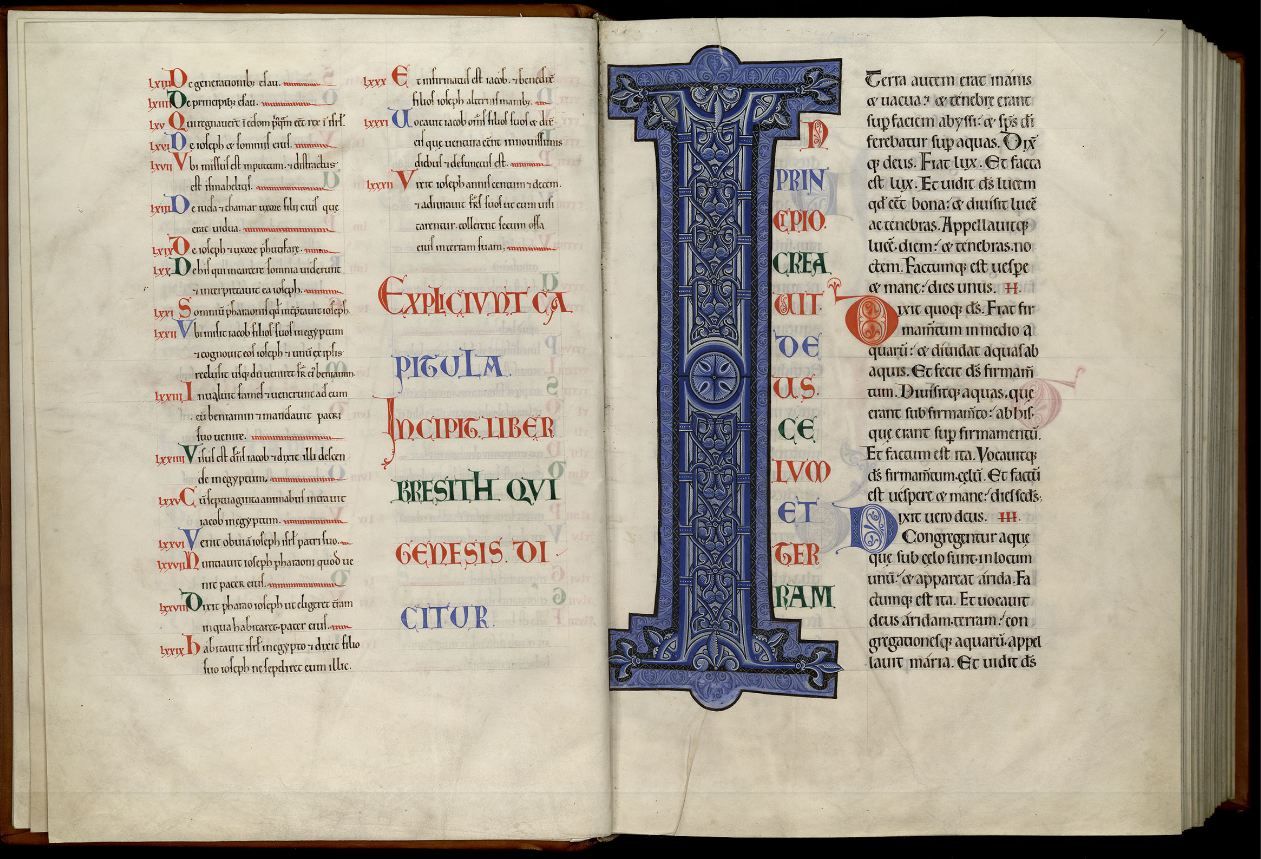 LXIII De generationib; esau.
LXIIII De principib; esau.
LXV Qui regnauer̄ ī edom p̄sq̄m eēt rex ī isrl̄.
LXVI De ioseph & somniis eius.
LXVII Vbi missus est in puteum. ⁊ distractus
est ismahelitis.
LXVIII De iuda & thamar uxore filii eius que
erat uidua.
LXIX De ioseph ⁊ uxore phutifare.
LXX De his qui in carcere somnia uiderunt
⁊ interpretauit ea ioseph.
LXXI Somniū pharaonis q̇d īt̄ptauit ioseph.
LXXII Vbi misit iacob filios suos in egyptum
⁊ cognouit eos ioseph ⁊ unū ex ipsis
retinuit usq; dū ueniret fr̄ ei' beniamin.
LXXIII Inualuit fames ⁊ uenerunt ad eum
cū beniamin ⁊ mandauit patri
suo uenire.
LXXIIII Visus est dn̄s iacob ⁊ dixit illi descen
de in egyptum.
LXXV Cū septuaginta animabus intrauit
iacob in egyptum.
LXXVI Venit obuiā ioseph isrl̄ patri suo.
LXXVII Nuntiauit ioseph pharaoni quod ue
nit pater eius.
LXXVIII Dixit pharao ioseph ut eligeret t̄ram
in qua habitaret pater eius.
LXXIX habitauit isrl̄ in egypto ⁊ dixit filio
suo ioseph ne sepeliret eum illic.
LXXX Et infirmatus est iacob. ⁊ benedix̄
filios ioseph alternis manib;.
LXXXI Uocauit iacob om̄s filios suos & dix̄
eis que uentura eēnt in nouissimis
diebus & defunctus est.
LXXXII Vixit ioseph annis centum ⁊ decem.
⁊ adiurauit fr̄s suos ut cum uisi
tarentur. tollerent secum ossa
eius in terram suam;
EXPLICIUNT CA
PITULA.
INCIPIT. LIBER
BRESITH QUI
GENESIS. DI
CITUR.
I
N
PRIN
CIPIO.
CREA
UIT.
DE
US.
CE
LUM
ET
TER
RAM
Terra autem erat inanis
& uacua: & tenebre erant
sup faciem abyssi: & sp̄s di
ferebatur sup aquas. Dix̄
q; deus. Fiat lux. Et facta
est lux. Et uidit ds̄ lucem
qd eēt bona: & diuisit lucē
ac tenebras. Appellauitq;
lucē. diem: & tenebras. no
ctem. Factumq; est uespe
& mane: dies unus. II.
Dixit quoq; ds̄. Fiat fir
mam̄tum in medio a
quarū: & diuidat aquas ab
aquis. Et fecit ds̄ firmam̄
tum. Diuisitq; aquas. que
erant sub firmam̄to: ab his.
que erant sup firmamentū.
Et factum est ita. Vocauitq;
ds̄ firmam̄tum. celū. Et factū
est uespere & mane: dies scds̄.
Dixit uero deus. III.
Congregentur aque
que sub celo sunt. in locum
unū: & appareat árida. Fa
ctumq; est ita. Et uocauit
deus áridam. terram: con
gregationesq; aquarū. appel
lauit mária. Et uidit ds̄